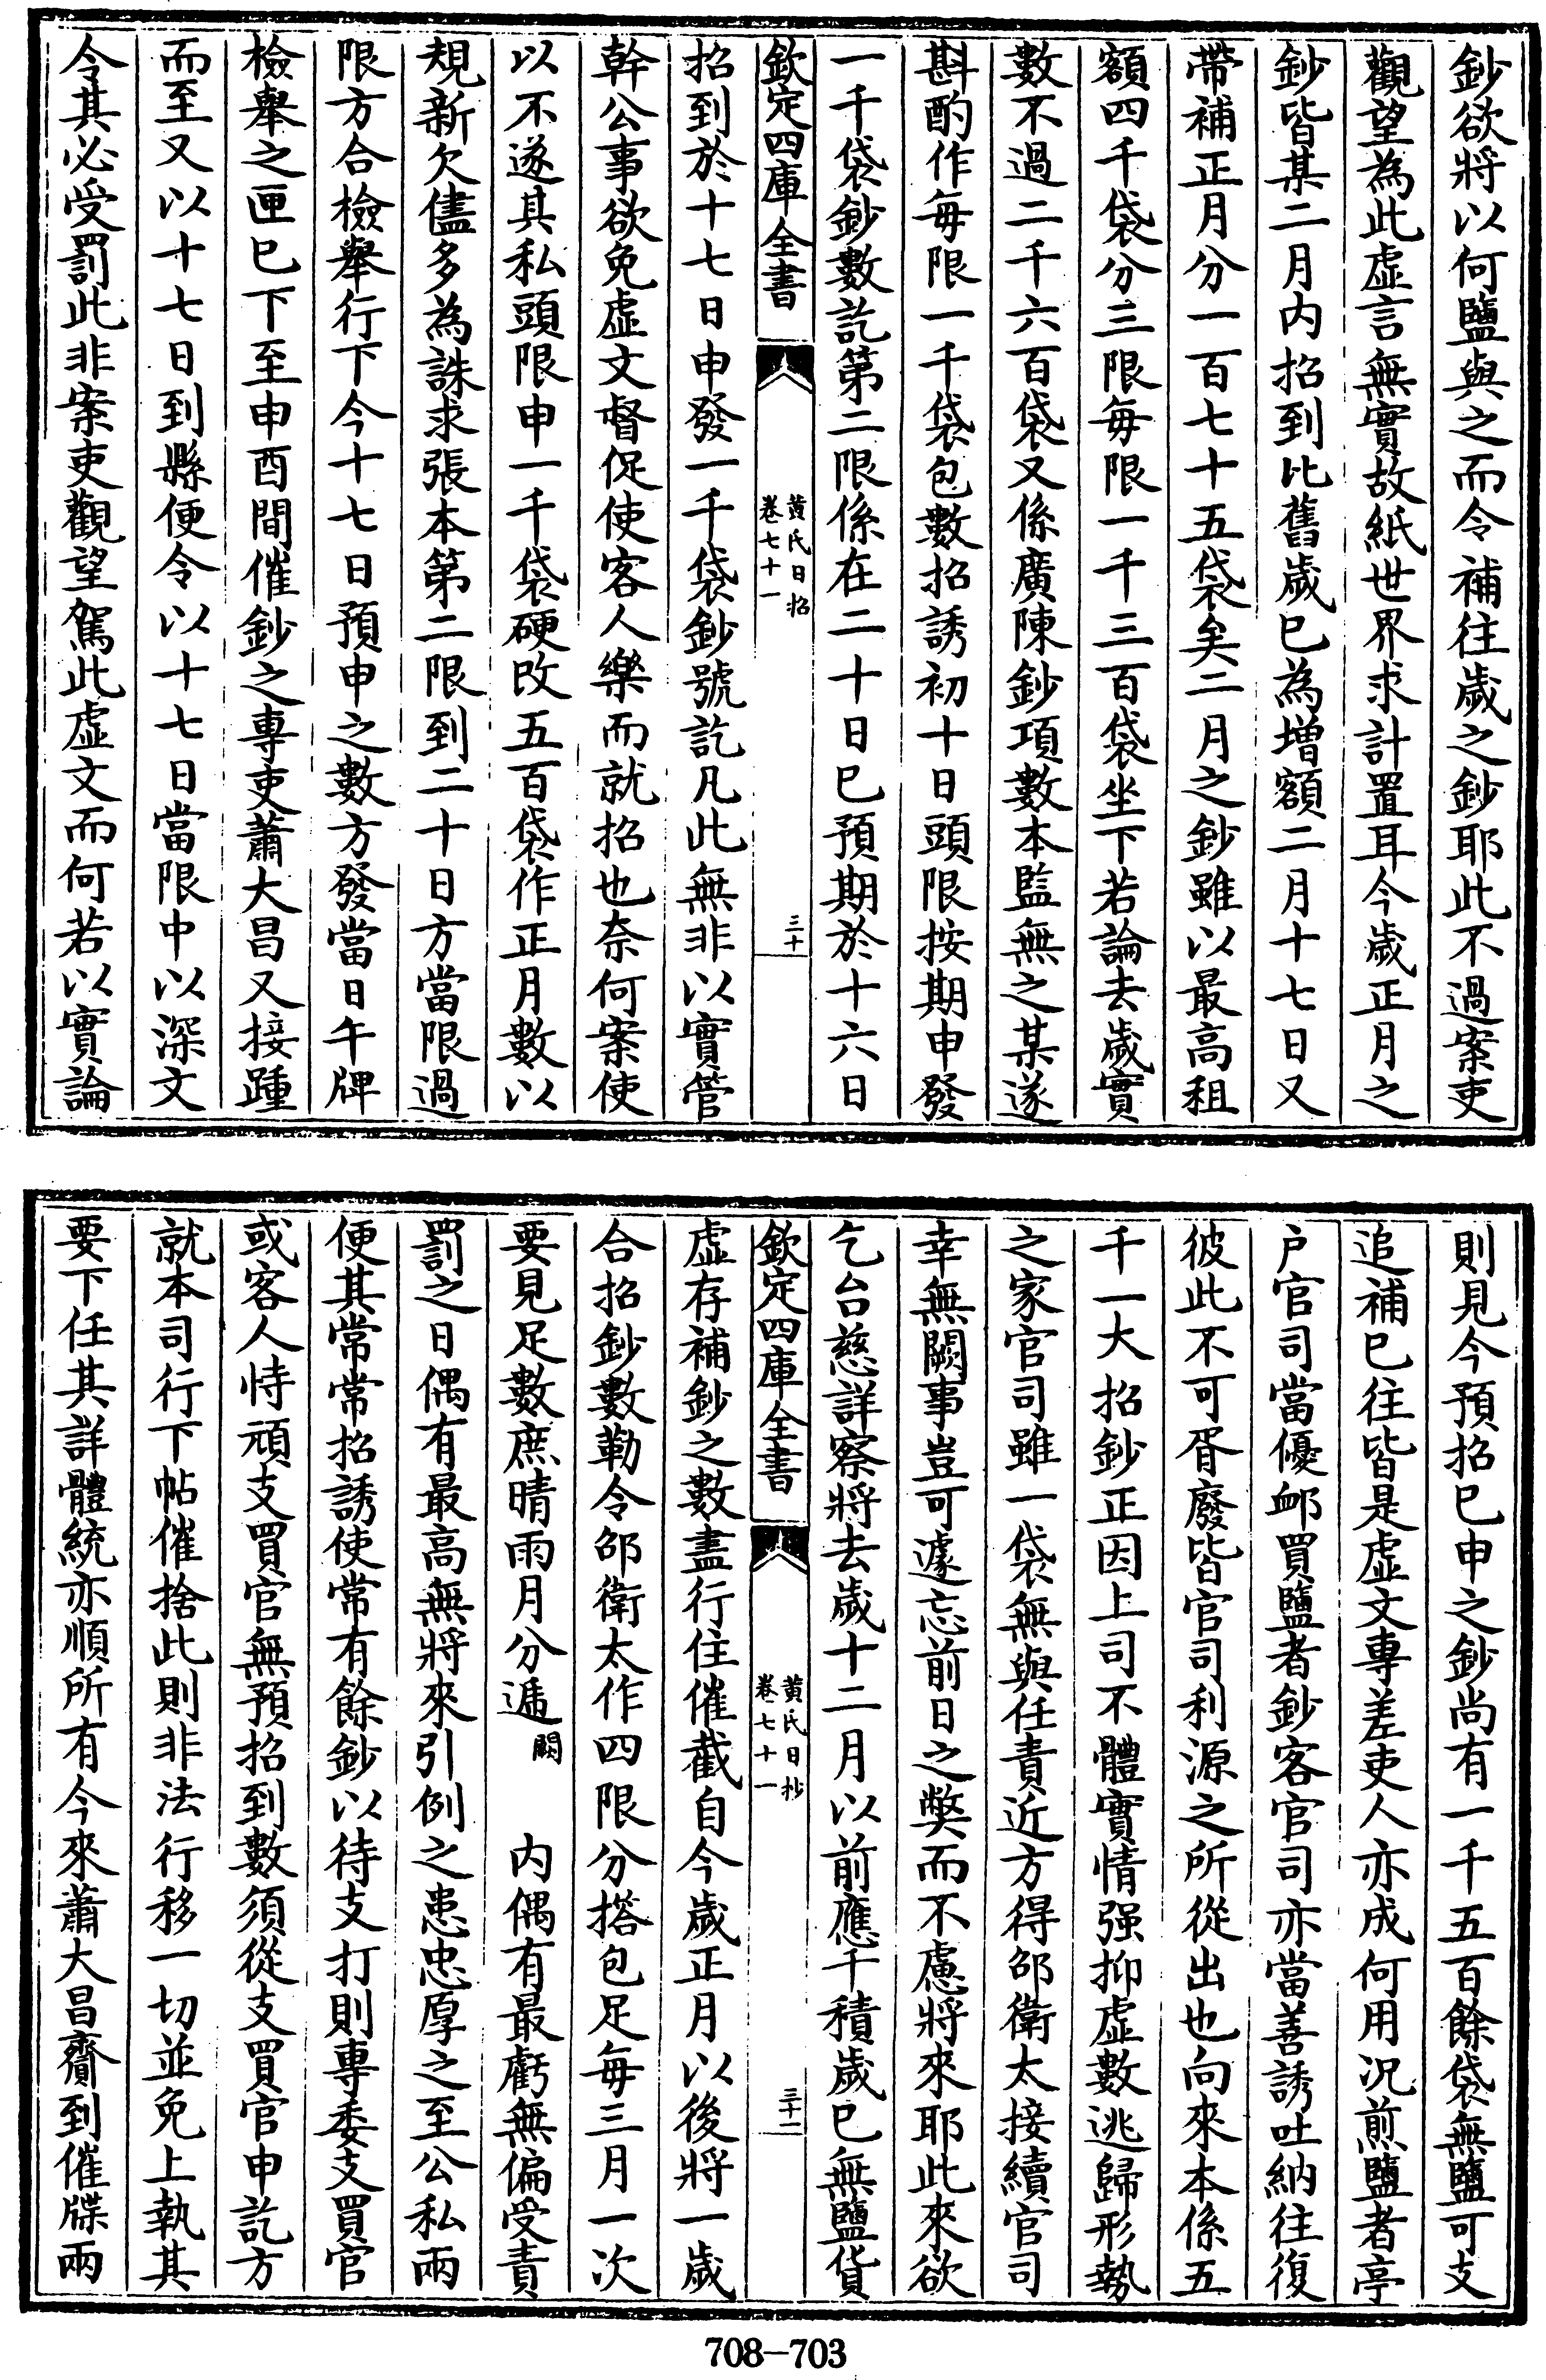 鈔欲將以何鹽與之而令補往歲之鈔耶此不過案吏
觀望為此虛言無實故紙世界求計置耳今歲正月之
鈔皆某二月内招到比舊歲已為增額二月十七日又
帶補正月分一百七十五袋矣二月之鈔雖以最高租
額四千袋分三限毎限一千三百袋坐下若論去歲實
數不過二千六百袋又係廣陳鈔項數本監無之某遂
斟酌作毎限一千袋包數招誘初十日頭限按期申發
一千袋鈔數訖第二限係在二十日已預期於十六日
欽定四庫全書
黄氏日招
卷七十一
三十
招到於十七日申發一千袋鈔號訖凡此無非以實管
幹公事欲免虛文督促使客人樂而就招也奈何案使
以不遂其私頭限申一千袋硬改五百袋作正月數以
規新欠儘多為誅求張本第二限到二十日方當限過
限方合檢舉行下今十七日預申之數方發當日午牌
檢舉之匣已下至申酉間催鈔之專吏蕭大昌又接踵
而至又以十七日到縣便令以十七日當限中以深文
令其必受罰此非案吏觀望駕此虛文而何若以實論
則見今預招已申之鈔尚有一千五百餘袋無鹽可支
追補已往皆是虛文專差吏人亦成何用况煎鹽者亭
户官司當優䘏買鹽者鈔客官司亦當善誘吐納往復
彼此不可胥廢皆官司利源之所從出也向來本係五
千一大招鈔正因上司不體實情强抑虛數逃歸形勢
之家官司雖一袋無與任責近方得邵衛太接續官司
幸無闕事豈可遽忘前日之弊而不慮將來耶此來欲
乞台慈詳察將去歲十二月以前應千積歲已無鹽貨
欽定四庫全書
黄氏日抄
卷七十一
三十一
虛存補鈔之數盡行住催截自今歲正月以後將一歲
合招鈔數勒令邵衛太作四限分搭包足每三月一次
要見足數庶晴雨月分遞闕　内偶有最虧無偏受責
罰之日偶有最高無將來引例之患忠厚之至公私兩
便其常常招誘使常有餘鈔以待支打則專委支買官
或客人恃頑支買官無預招到數須從支買官申訖方
就本司行下帖催捨此則非法行移一切並免上執其
要下任其詳體統亦順所有今來蕭大昌齎到催牒兩
708—703